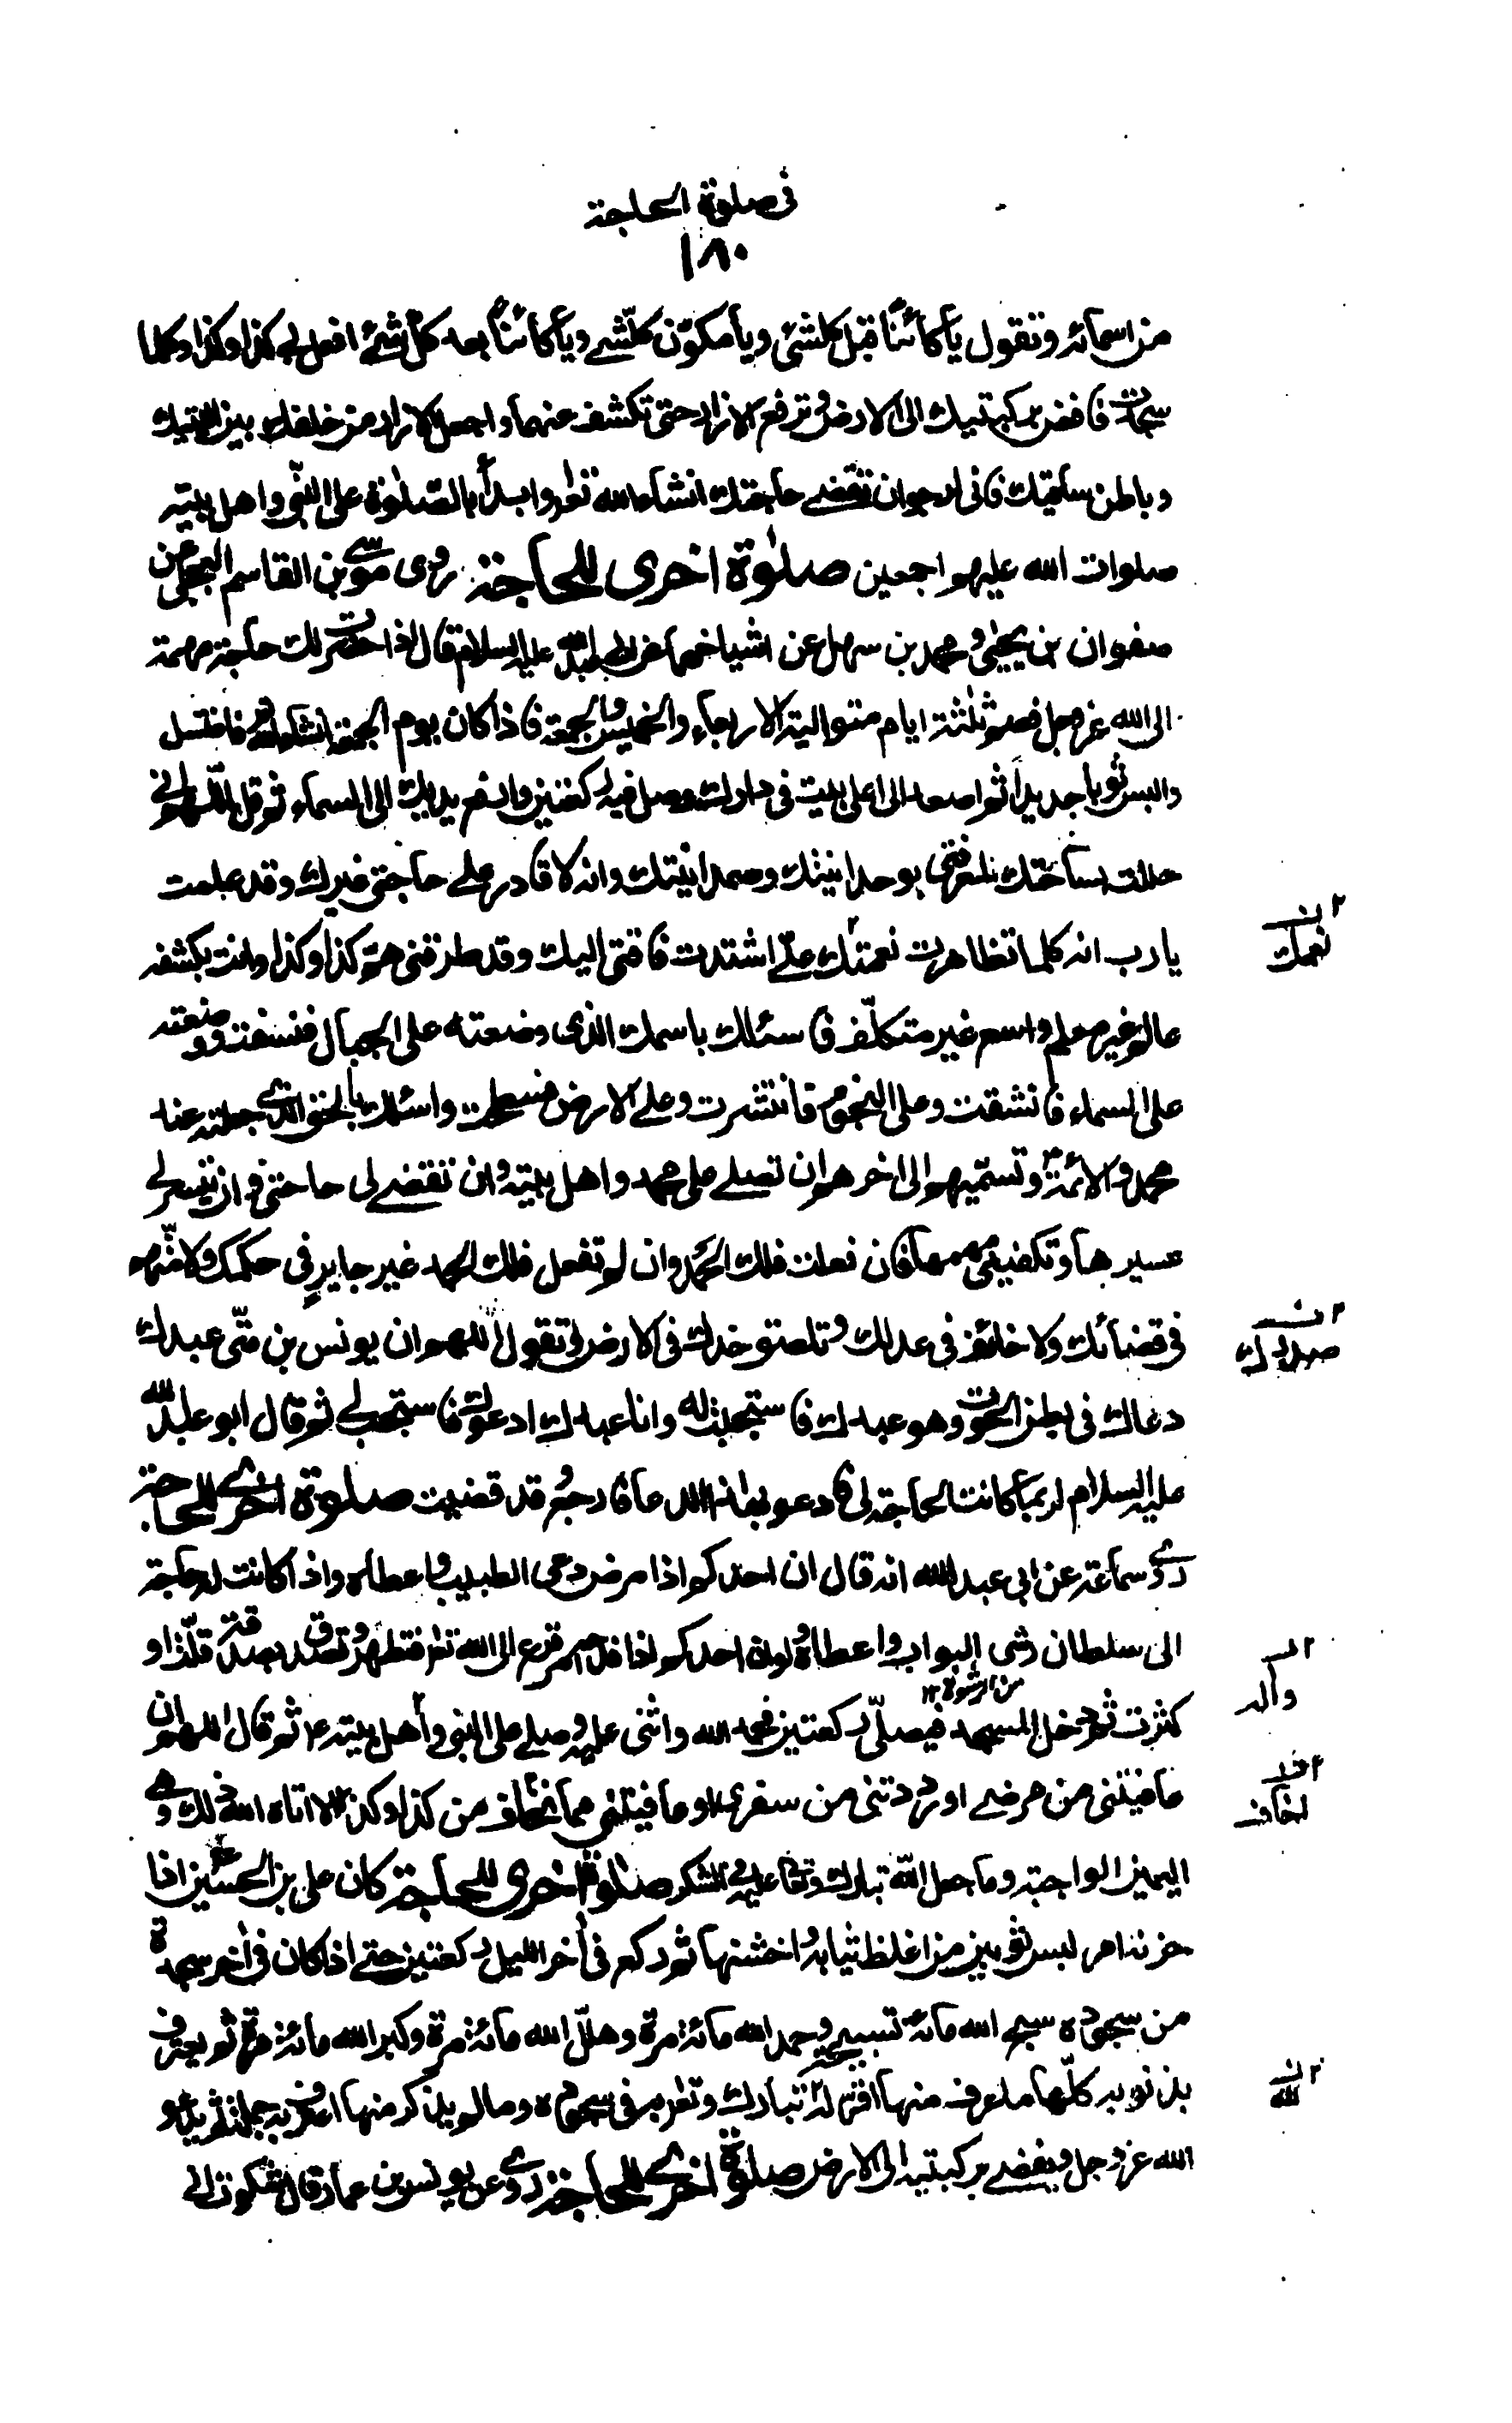 فى صلوة الحاجة
١٨٠
من اسمائه وتقول يا كائنا قبل كلشئ ويا مكوّن كلّشے ويا كائناً بعد كل شئ افعل بى كذا وكذا وكلما
سجدت فافض بركبتيك الى الارض وترفع الازار حتى تكشف عنهما واجعل الازار من خلفك بين اليتيك
وباطن ساقيك فانى ارجو ان تقضى حاجتك انشاء الله تعالى وابدأ بالصّلوٰة على النبّى واهل بيته
صلوات الله عليهم اجمعين صلوٰة اخرى للحاجة روى موسى بن القاسم البجلى عن
صفوان بن يحيىٰ ومحمد بن سهل عن اشياخهما عن ابى عبد الله عليه السلام قال اذا حضرت لك حاجة مهمة
الى الله عز وجل فصم ثلثة ايام متوالية الاربعاء والخميس والجمعة فاذا كان يوم الجمعة انشاء الله فاغتسل
والبس ثوبا جديداً ثم اصعد الى اعلى بيت فى دارك وصل فيه ركعتين وارفع يديك الى السماء ثم قل اللّهم انى
حللت بساحتك لمعرفتى بوحدانيتك وصمدانيتك وانه لا قادر على حاجتى غيرك وقد علمت
يا رب انه كلما تظاهرت نعمتك علىّ اشتدت فاقتى اليك وقد طرقنى همّ كذا وكذا وانت بكشفه
عالم غير معلم واسع غير متكلّف فاسئلك باسمك الذى وضعته على الجبال فنسفت ووضعته
على السماء فانشقت وعلى النجوم فانتثرت وعلى الارض فسطحت واسئلك بالحق الذى جعلته عند
محمد والائمة وتسمّيهم الى اخرهم ان تصلى على محمد واهل بيته وان تقضى لى حاجتى وان تيسر لى
عسيرها وتكفينى مهمها فان فعلت فلك الحمد وان لم تفعل فلك الحمد غير جاير فى حكمك ولا متّهم
فى قضائك ولا حائف فى عدلك وتلصق خدك فى الارض وتقول اللهم ان يونس بن متّى عبدك
دعاك فى بطن الحوت وهو عبدك فاستجبت له وانا عبدك ادعوك فاستجب لى ثم قال ابو عبد الله
عليه السلام لربما كانت الحاجة لى فادعو بهذا الدعاء فارجع وقد قضيت صلوة اخرى للحاجة
روى سماعة عن ابى عبد الله انه قال ان احدكم اذا مرض دعى الطبيب واعطاه واذا كانت له حاجة
الى سلطان رشى البواب واعطاه ولو ان احدكم اذا فدحه امر فزع الى الله تعالى فتطهر وتصدق بصدقة قلّت او
من الرشوة ١٢
كثرت ثم دخل المسجد فيصلّى ركعتين فحمد الله واثنى عليه وصلى على النبى واهل بيته ثم قال اللهم ان
عافيتنى من مرضى او رددتنى من سفرى او عافيتنى مما اخاف من كذا وكذا الا اتاه الله ذلك وهى
اليمين الواجبة وما جعل الله تبارك وتعالى عليه فى الشكر صلوة اخرى للحاجة كان على بن الحسين اذا
حزنه امر لبس ثوبين من اغلظ ثيابه واخشنها ثم ركع فى اٰخر الليل ركعتين حتى اذا كان فى اٰخر سجدة
من سجوده سبح الله مائة تسبيحة وحمد الله مائة مرة وهلّل الله مائة مرة وكبر الله مائة مرة ثم يعترف
بذنوبه كلّها ما عرف منها اقر له تبارك وتعالى به فى سجوده وما لم يذكر منها اعترف به جملة ثم يدعو
الله عز وجل ويفضى بركبتيه الى الارض صلوة اخرى للحاجة روى عن يونس بن عمار قال شكوت الى
نعمك
وآله
اخاف
لله